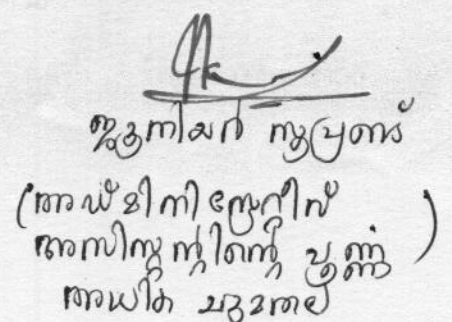 ജൂനിയർ സൂപ്രണ്ട്
(അഡ്മിനിസ്ട്രേറ്റീവ്
അസിസ്റ്റന്റിന്റെ പൂർണ്ണ
അധിക ചുമതല)